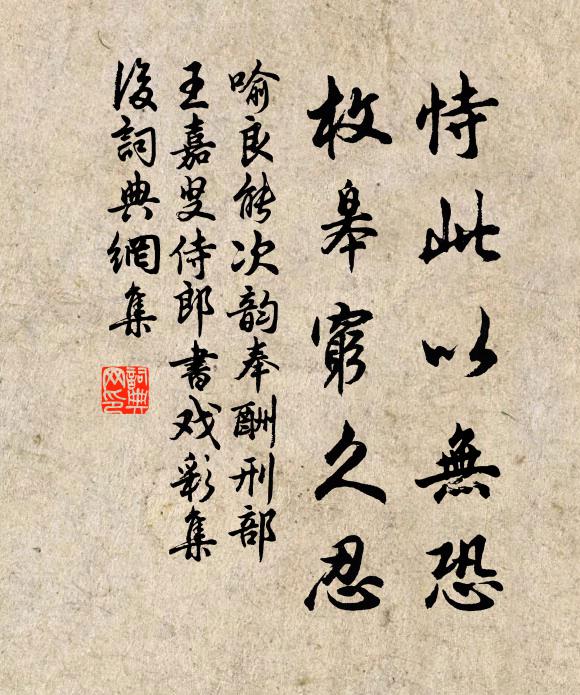 恃此以無恐
枚皋窮久忍
喻良能次韵奉酬刑部
王嘉叟侍郎書戏彩集
後詞典網集
詞典
网印